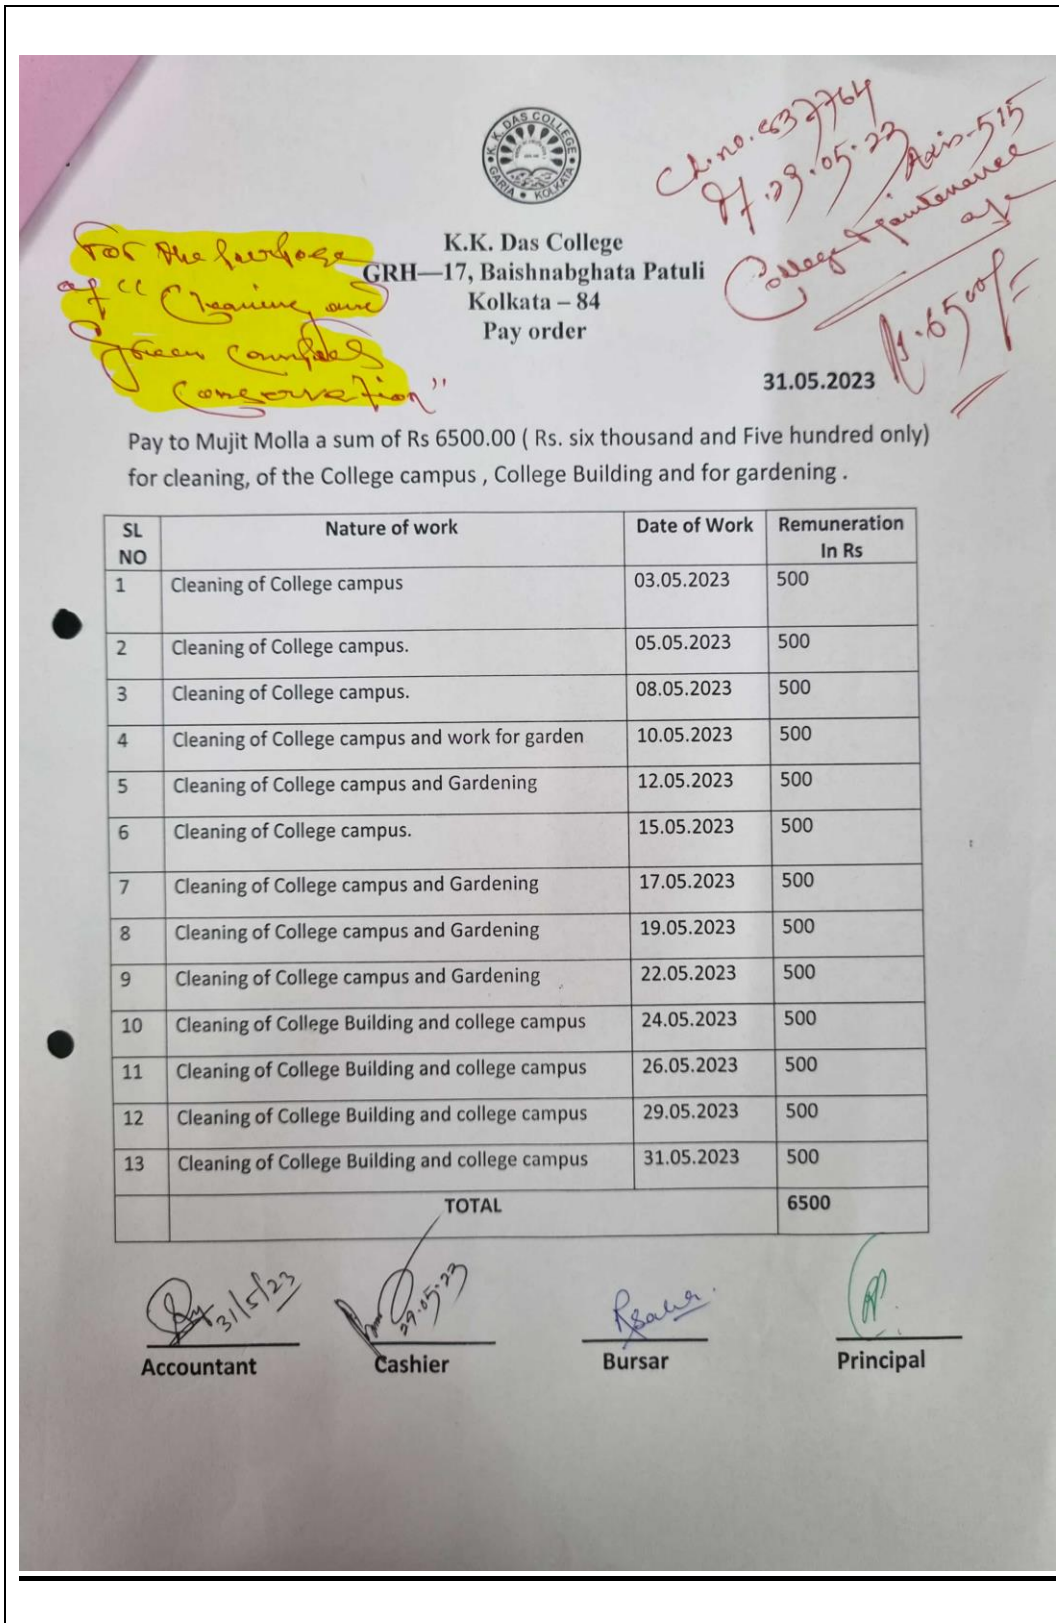 K. K. DAS COLLEGE
GARIA • KOLKATA
Ch. no. 037764
dt. 29.05.23
Axis-515
College Maintenance
a/c
Rs. 6500/=
For the purpose
of "Cleaning and
Green campus
conservation"
K.K. Das College
GRH—17, Baishnabghata Patuli
Kolkata – 84
Pay order
31.05.2023
Pay to Mujit Molla a sum of Rs 6500.00 ( Rs. six thousand and Five hundred only)
for cleaning, of the College campus , College Building and for gardening .
SL NO Nature of work Date of Work Remuneration In Rs
1 Cleaning of College campus 03.05.2023 500
2 Cleaning of College campus. 05.05.2023 500
3 Cleaning of College campus. 08.05.2023 500
4 Cleaning of College campus and work for garden 10.05.2023 500
5 Cleaning of College campus and Gardening 12.05.2023 500
6 Cleaning of College campus. 15.05.2023 500
7 Cleaning of College campus and Gardening 17.05.2023 500
8 Cleaning of College campus and Gardening 19.05.2023 500
9 Cleaning of College campus and Gardening 22.05.2023 500
10 Cleaning of College Building and college campus 24.05.2023 500
11 Cleaning of College Building and college campus 26.05.2023 500
12 Cleaning of College Building and college campus 29.05.2023 500
13 Cleaning of College Building and college campus 31.05.2023 500
TOTAL 6500
31/5/23 29.05.23 RSaha
Accountant Cashier Bursar Principal